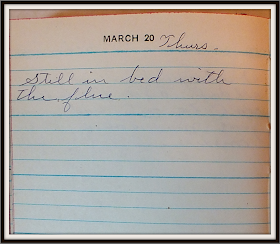 MARCH 20 Thurs.
Still in bed with
the flue.